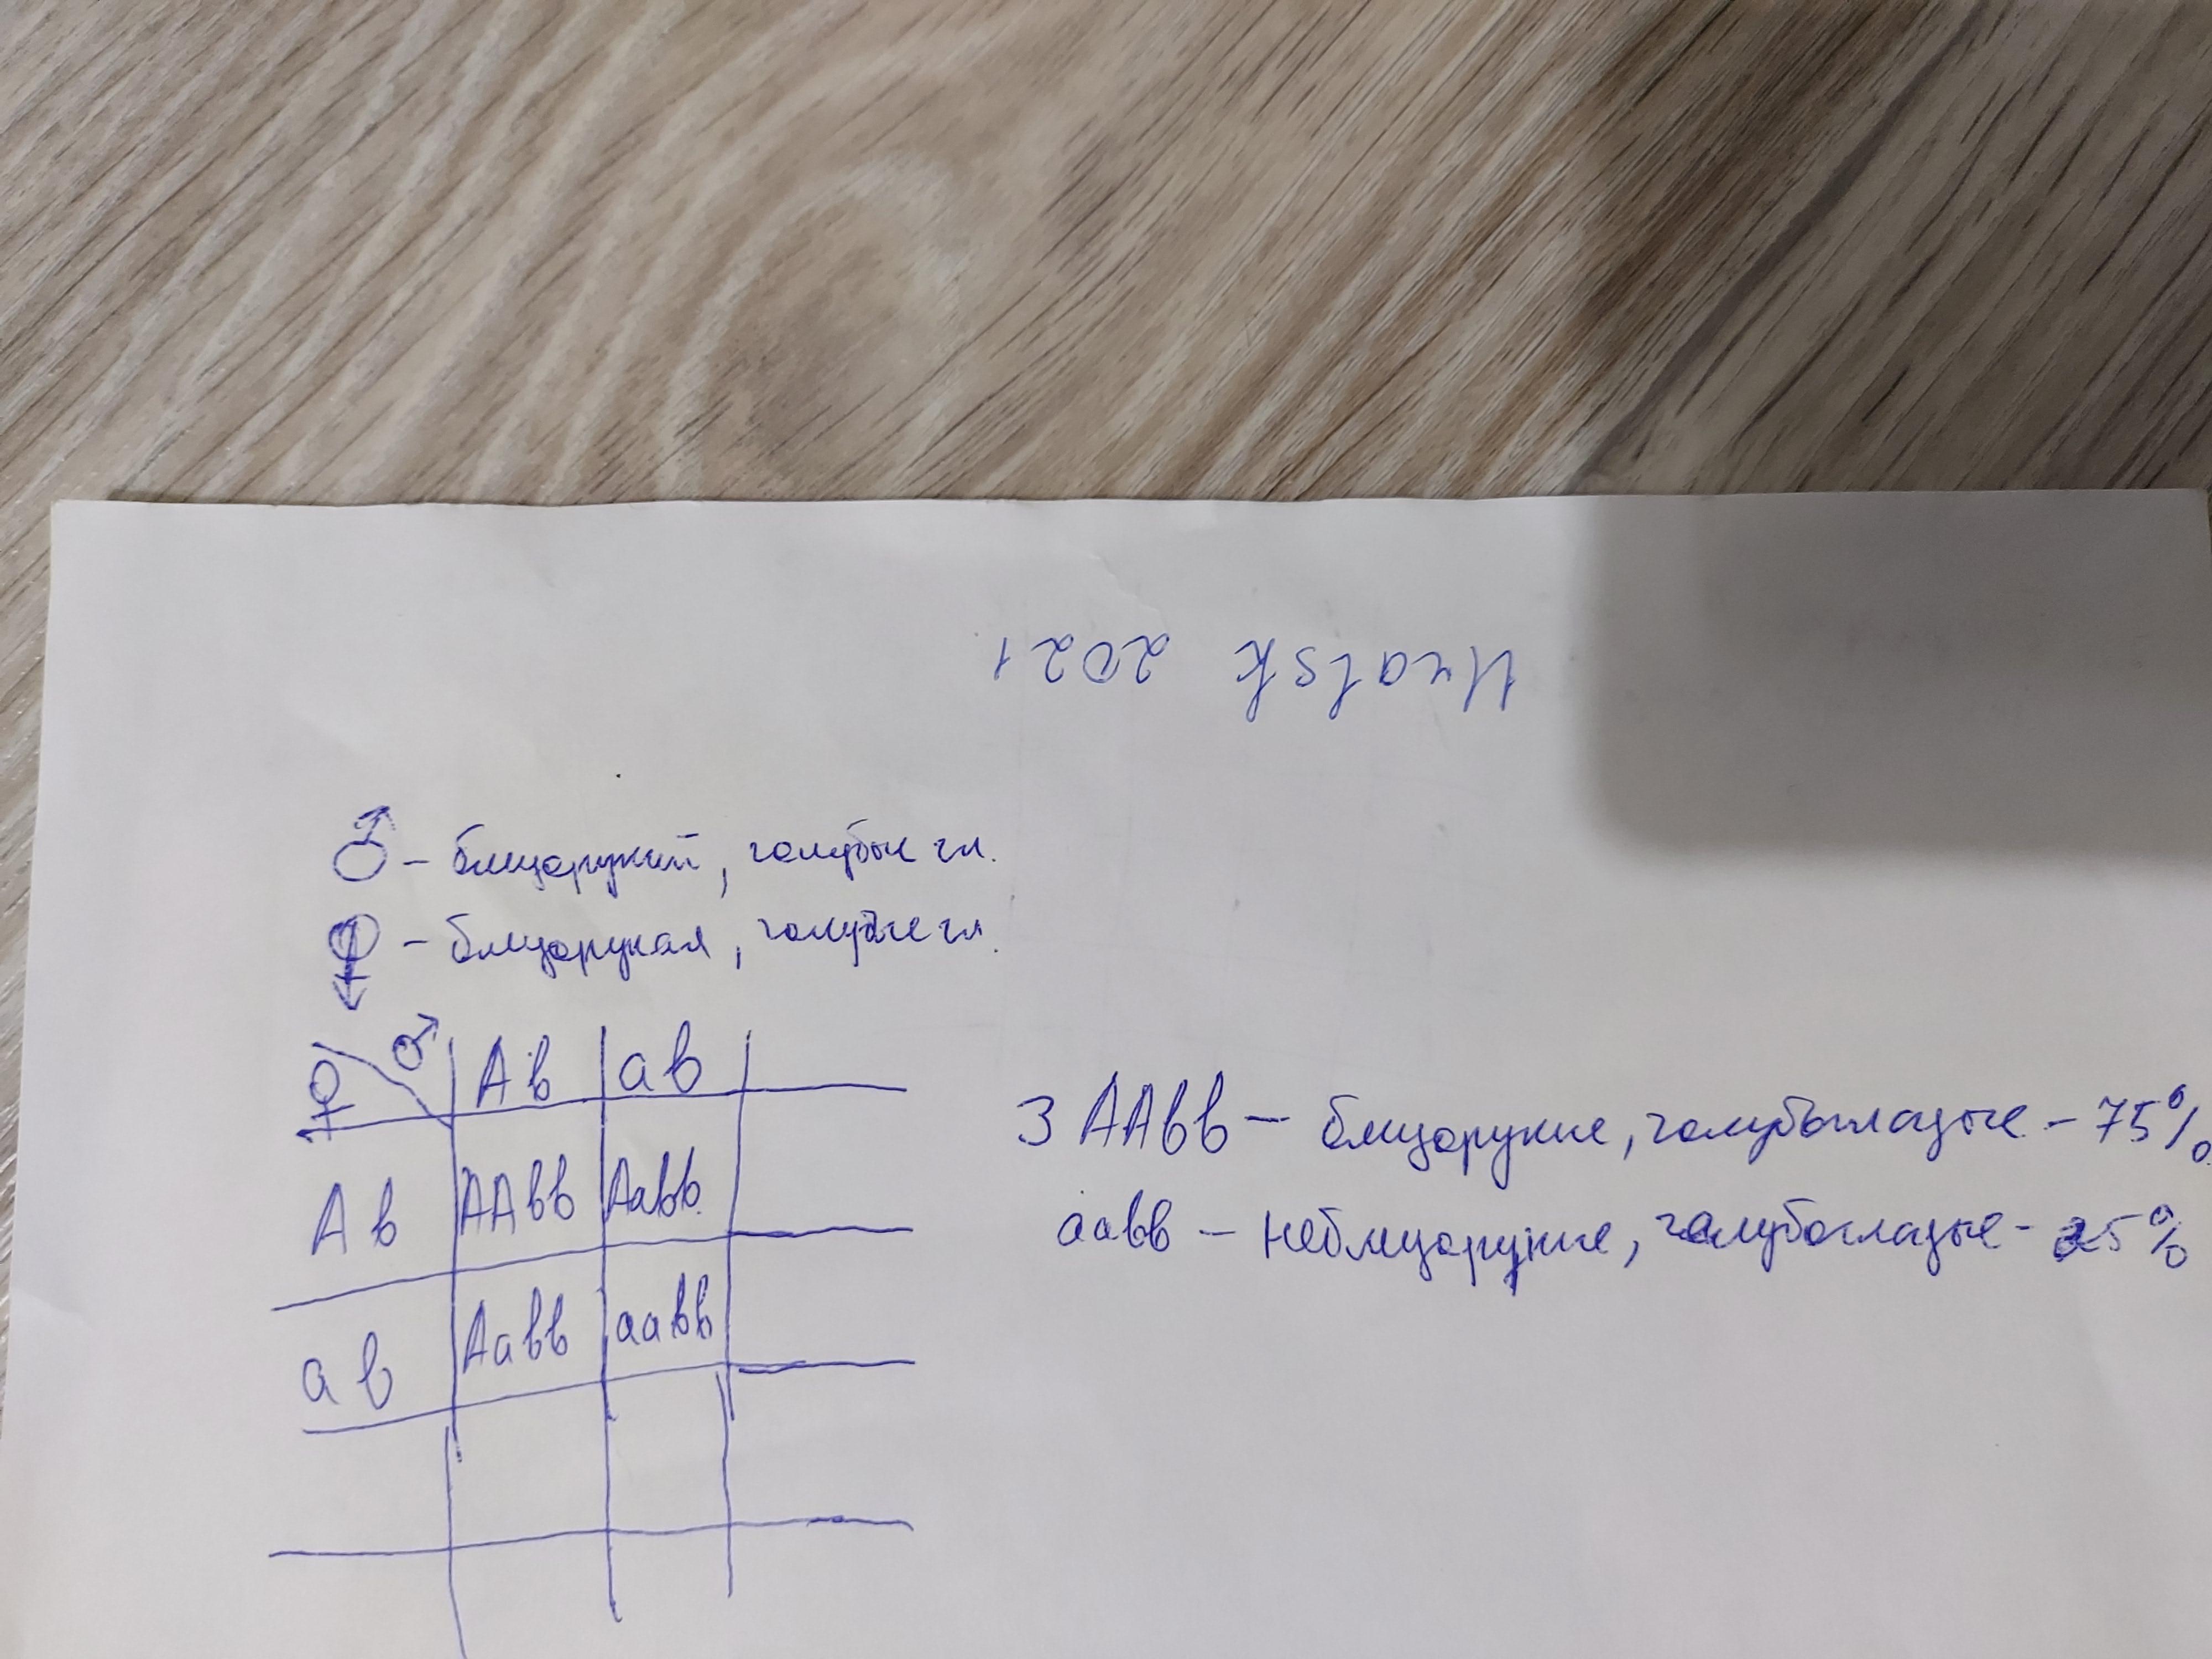 Uralsk 2021
♂ - близорукий, голубые гл.
♀ - близорукая, голубые гл.
♀ ♂ Ав ав
Ав ААвв Аавв
ав Аавв аавв
3 ААвв - близорукие, голубоглазые - 75%
аавв - неблизорукие, голубоглазые - 25%